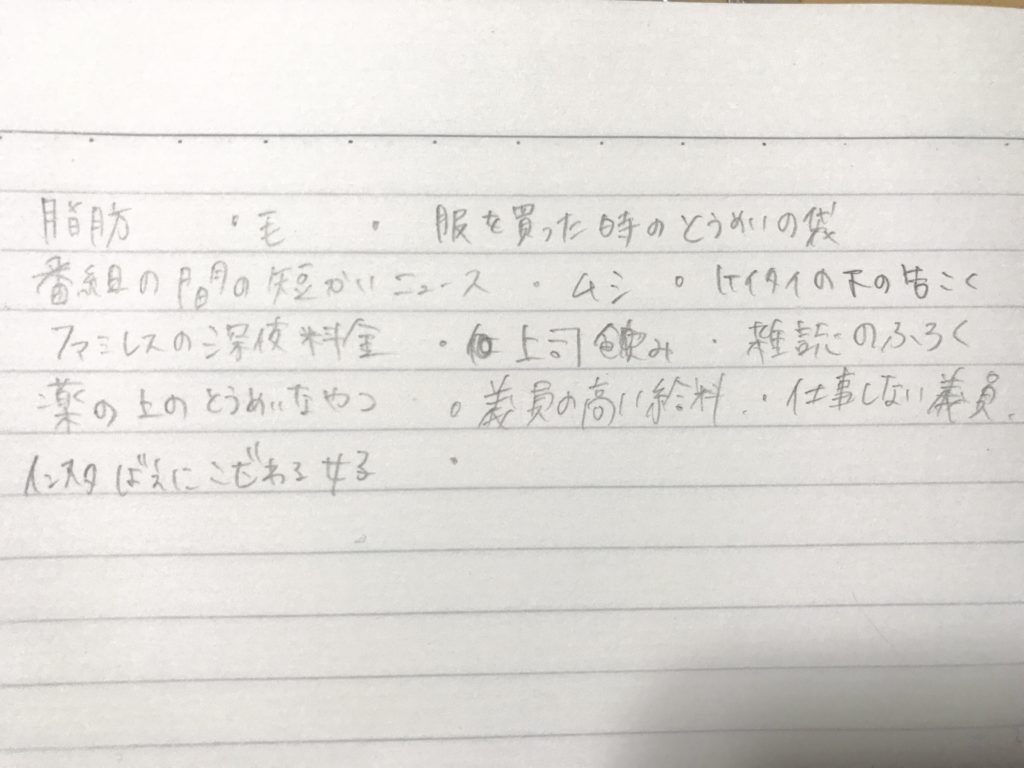 脂肪 ・毛 ・ 服を買った時のとうめいの袋
番組の間の短かいニュース ・ ムシ ・ ケイタイの下の告こく
ファミレスの深夜料金 ・ 上司飲み ・ 雑誌のふろく
薬の上のとうめいなやつ 。議員の高い給料 ・仕事しない議員
インスタばえにこだわる女子 ・